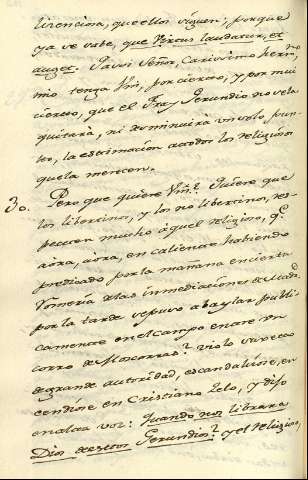 licenciosa, que ellos siguen; porque
ya se sabe, que Virtus laudatur, et
auget. Assi Señor, Carissimo herm.no
mio tenga Vm, por cierto, y por mui
cierto, que el Fray Gerundio no le
quitará, ni disminuirà un solo pun-
to, la estimacion a todos los religiosos
que la merecen.
30. Pero que quiere Vm.? Quiere que
los libertinos, y los no libertinos, res-
pecten mucho à aquel religioso, q.e
aora, aora, en caliente habiendo
predicado por la mañana en cierta
romeria a las inmediaciones de Mad.d
por la tarde se puso a baylar publi-
camente en el campo entre un
corro de Mozcorras? Violo un seco
de grande autoridad, escandalizose, en
cendiose en Cristiano zelo, y dijo
en alta voz: Quando nos librará
Dios de estos Gerundios? y el religioso,